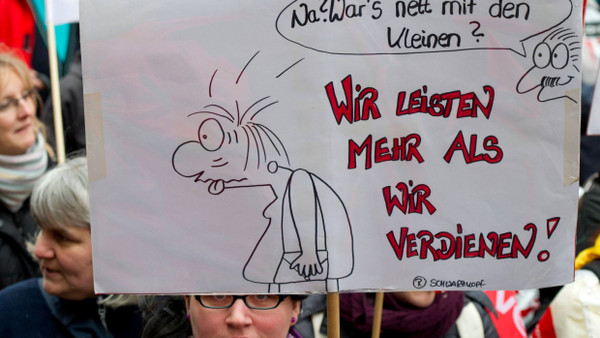 Na? War's nett mit den
Kleinen?
WIR LEISTEN
MEHR ALS
WIR
VERDIENEN!
® SCHWARZKOPF